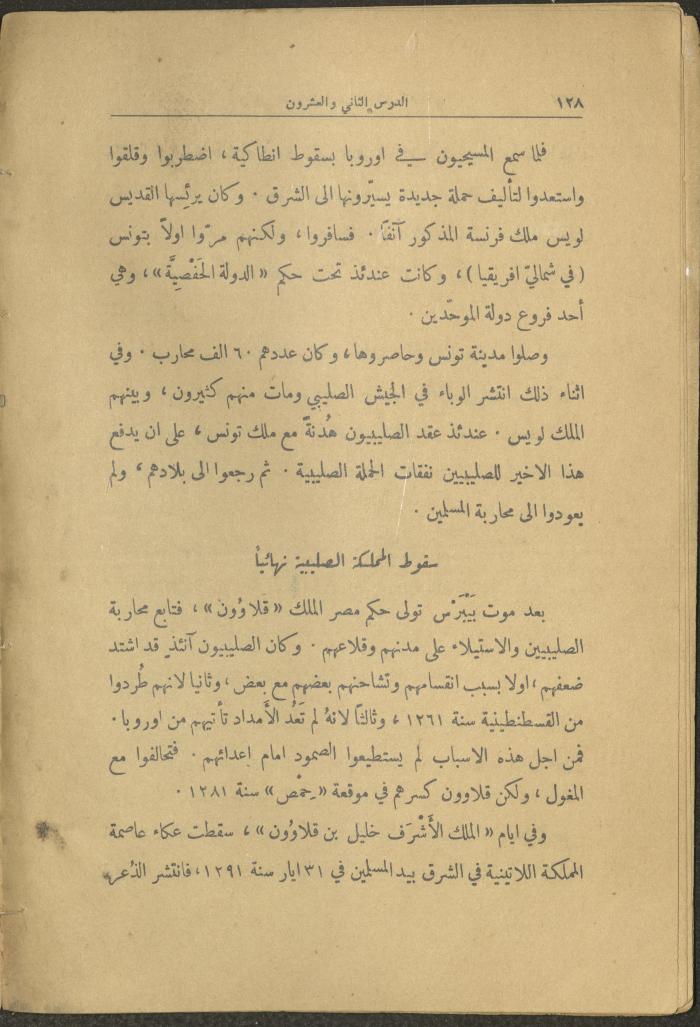 ١٢٨ الدرس الثاني والعشرون
فلما سمع المسيحيون في اوروبا بسقوط انطاكية ، اضطربوا وقلقوا
واستعدوا لتأليف حملة جديدة يسيّرونها الى الشرق . وكان يرئسها القديس
لويس ملك فرنسة المذكور آنفاً . فسافروا ، ولكنهم مرّوا اولاً بتونس
( في شماليّ افريقيا ) ، وكانت عندئذ تحت حكم « الدولة الحَفْصِيَّة » ، وهي
أحد فروع دولة الموحّدين .
وصلوا مدينة تونس وحاصروها ، وكان عددهم ٦٠ الف محارب . وفي
اثناء ذلك انتشر الوباء في الجيش الصليبي ومات منهم كثيرون ، وبينهم
الملك لويس . عندئذ عقد الصليبيون هُدنةً مع ملك تونس ، على ان يدفع
هذا الاخير للصليبيين نفقات الحملة الصليبية . ثم رجعوا الى بلادهم ، ولم
يعودوا الى محاربة المسلمين .
سقوط المملكة الصليبية نهائياً
بعد موت بَيْبَرْس تولى حكم مصر الملك « قلاوُون » ، فتابع محاربة
الصليبيين والاستيلاء على مدنهم وقلاعهم . وكان الصليبيون آنئذٍ قد اشتد
ضعفهم ، اولا بسبب انقسامهم وتشاحنهم بعضهم مع بعض ، وثانيا لانهم طُردوا
من القسطنطينية سنة ١٢٦١ ، وثالثاً لانهُ لم تَعُد الأَمداد تأتيهم من اوروبا .
فمن اجل هذه الاسباب لم يستطيعوا الصمود امام اعدائهم . فتحالفوا مع
المغول ، ولكن قلاوون كسرهم في موقعة « حِمْص » سنة ١٢٨١ .
وفي ايام « الملك الأَشْرَف خليل بن قلاوُون » ، سقطت عكاء عاصمة
المملكة اللاتينية في الشرق بيد المسلمين في ٣١ ايار سنة ١٢٩١ ، فانتشر الذُعر